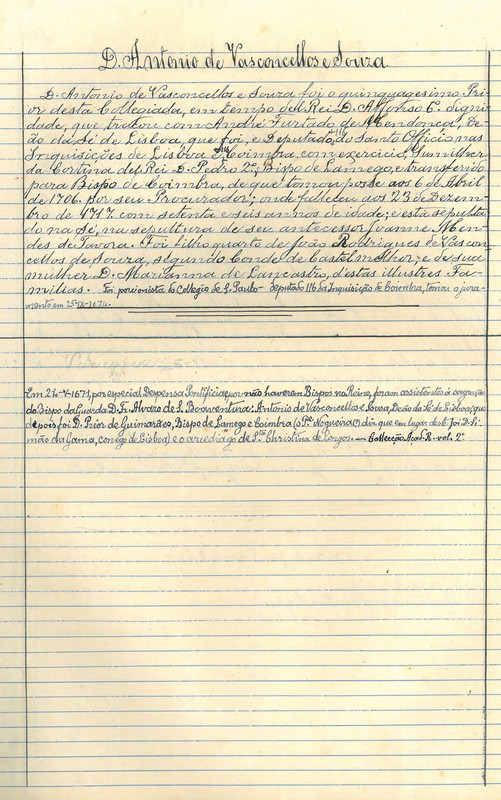 D. Antonio de Vasconcellos e Souza
D. Antonio de Vasconcellos e Souza foi o quinquagesimo Pri-
or desta Collegiada, em tempo del Rei D. Affonso 6º. Digni-
dade, que trocou com André Furtado de Mendonça, De-
ão da Sé de Lisboa, que foi, e Deputado do Santo Officio nas
Inquisições de Lisboa e Coimbra, com exercicio, Sumilher
da Cortina del Rei D. Pedro 2º, Bispo de Lamego, e transferido
para Bispo de Coimbra, de que tomou posse aos 6 de Abril
de 1706. por seu Procurador; onde falleceu aos 23 de Dezem-
bro de 1717 com setenta e seis annos de idade; e está sepulta-
do na Sé, na sepultura de seu antecessor Joanne Men-
des de Tavora. Foi filho quarto de João Rodrigues de Vascon-
cellos de Souza, segundo Conde de Castelmelhor; e de sua
mulher D. Marianna de Lancastro, d'estas illustres Fa-
milias. Foi porcionista do Collegio de S. Paulo - deputado 116 da Inquisição de Coimbra, tomou o jura-
mento em 25-IX-1674.
Em 24-V-1671, por especial Despensa Pontificia e por não haverem Bispos no Reino, foram assistentes á sagração
do Bispo da Guarda D. F. Alvaro de S. Boaventura: Antonio de Vasconcellos e Sousa, Deão da Sé de Lisboa, que
depois foi D. Prior de Guimarães, Bispo de Lamego e Coimbra (o Pe. Nogueira diz que em lugar deste foi D. Si-
mão da Gama, conego de Lisboa) e o arcediago de Sta Christina de Longos. — Collecção Acad. R. vol. 2º